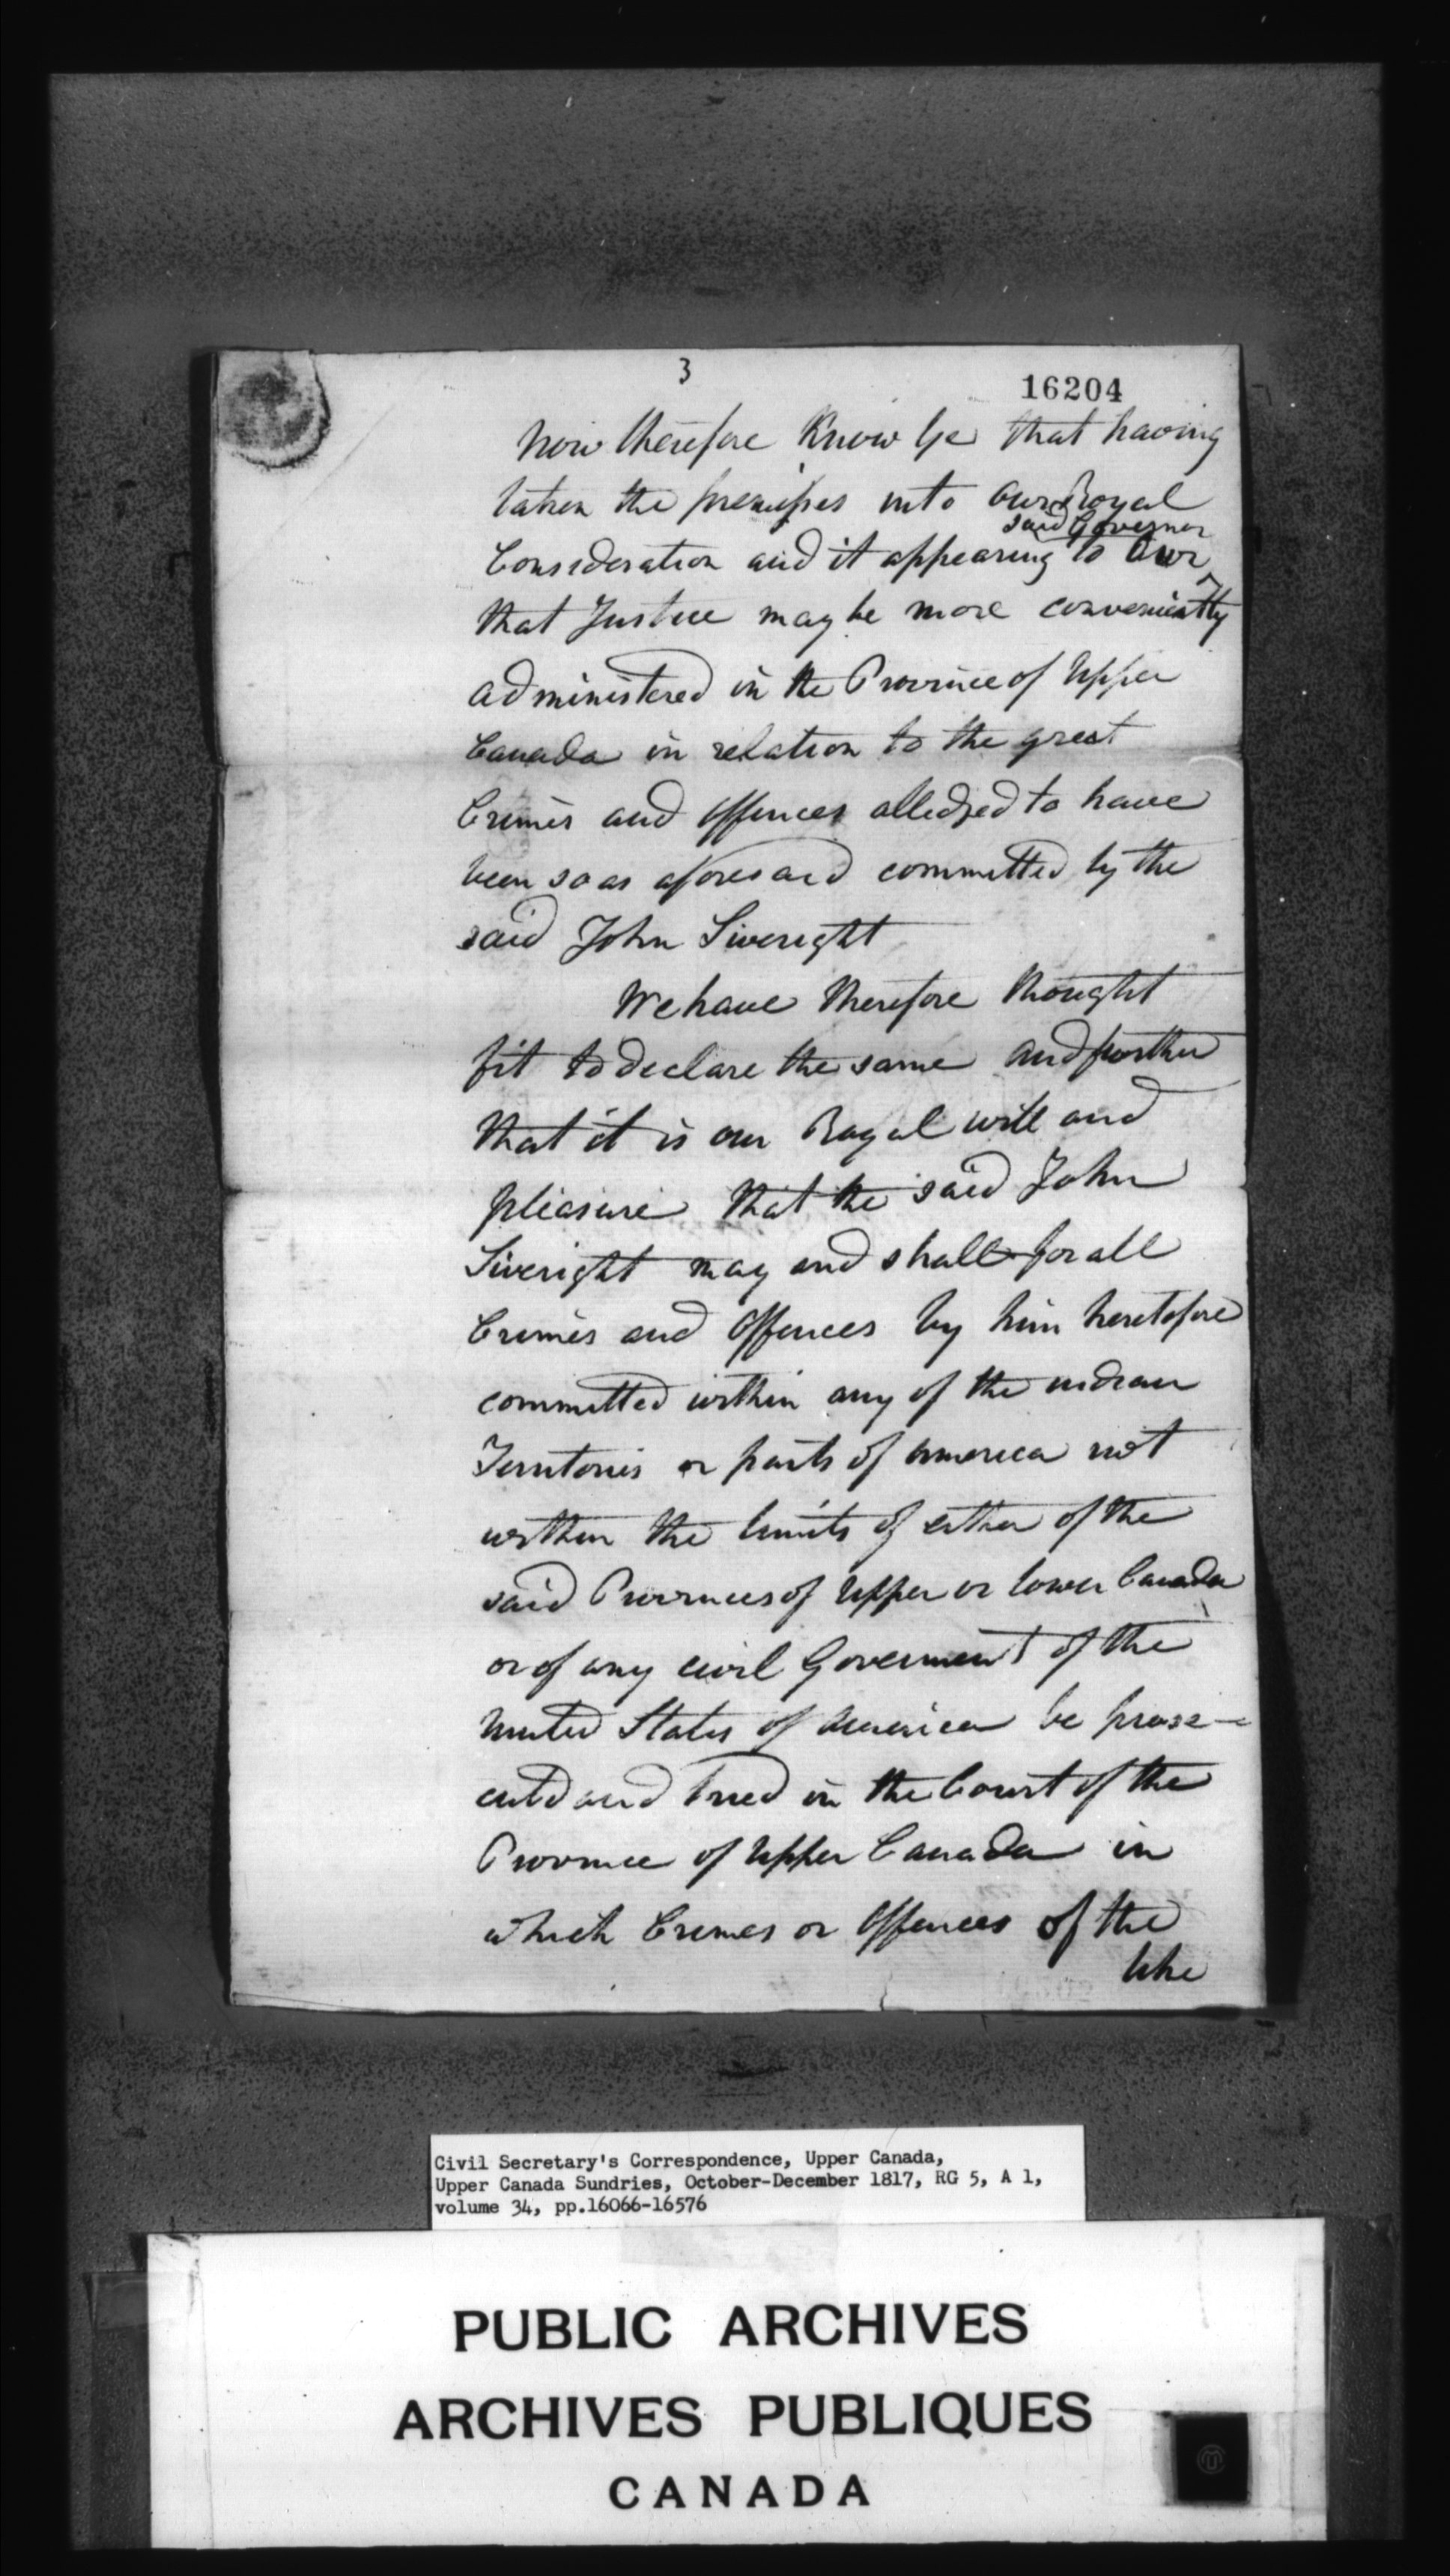 3
16204
Now therefore Know Ye that having
taken the premises into our Royal
said Governor
Consideration and it appearing to our
that Justice may be more conveniently
administered in the Province of Upper
Canada in relation to the great
Crimes and Offences alledged to have
been so as aforesaid committed by the
said John Siveright
We have therefore thought
fit to declare the same and further
that it is our Royal will and
pleasure that the said John
Siveright may and shall for all
Crimes and Offences by him heretofore
committed within any of the indian
Territories or parts of America not
within the limits of either of the
said Provinces of Upper or Lower Canada
or of any civil Goverment of the
United States of America be prose-
cuted and tried in the Court of the
Province of Upper Canada in
which Crimes or Offences of the
like
Civil Secretary's Correspondence, Upper Canada,
Upper Canada Sundries, October-December 1817, RG 5, A 1,
volume 34, pp.16066-16576
PUBLIC ARCHIVES
ARCHIVES PUBLIQUES
CANADA